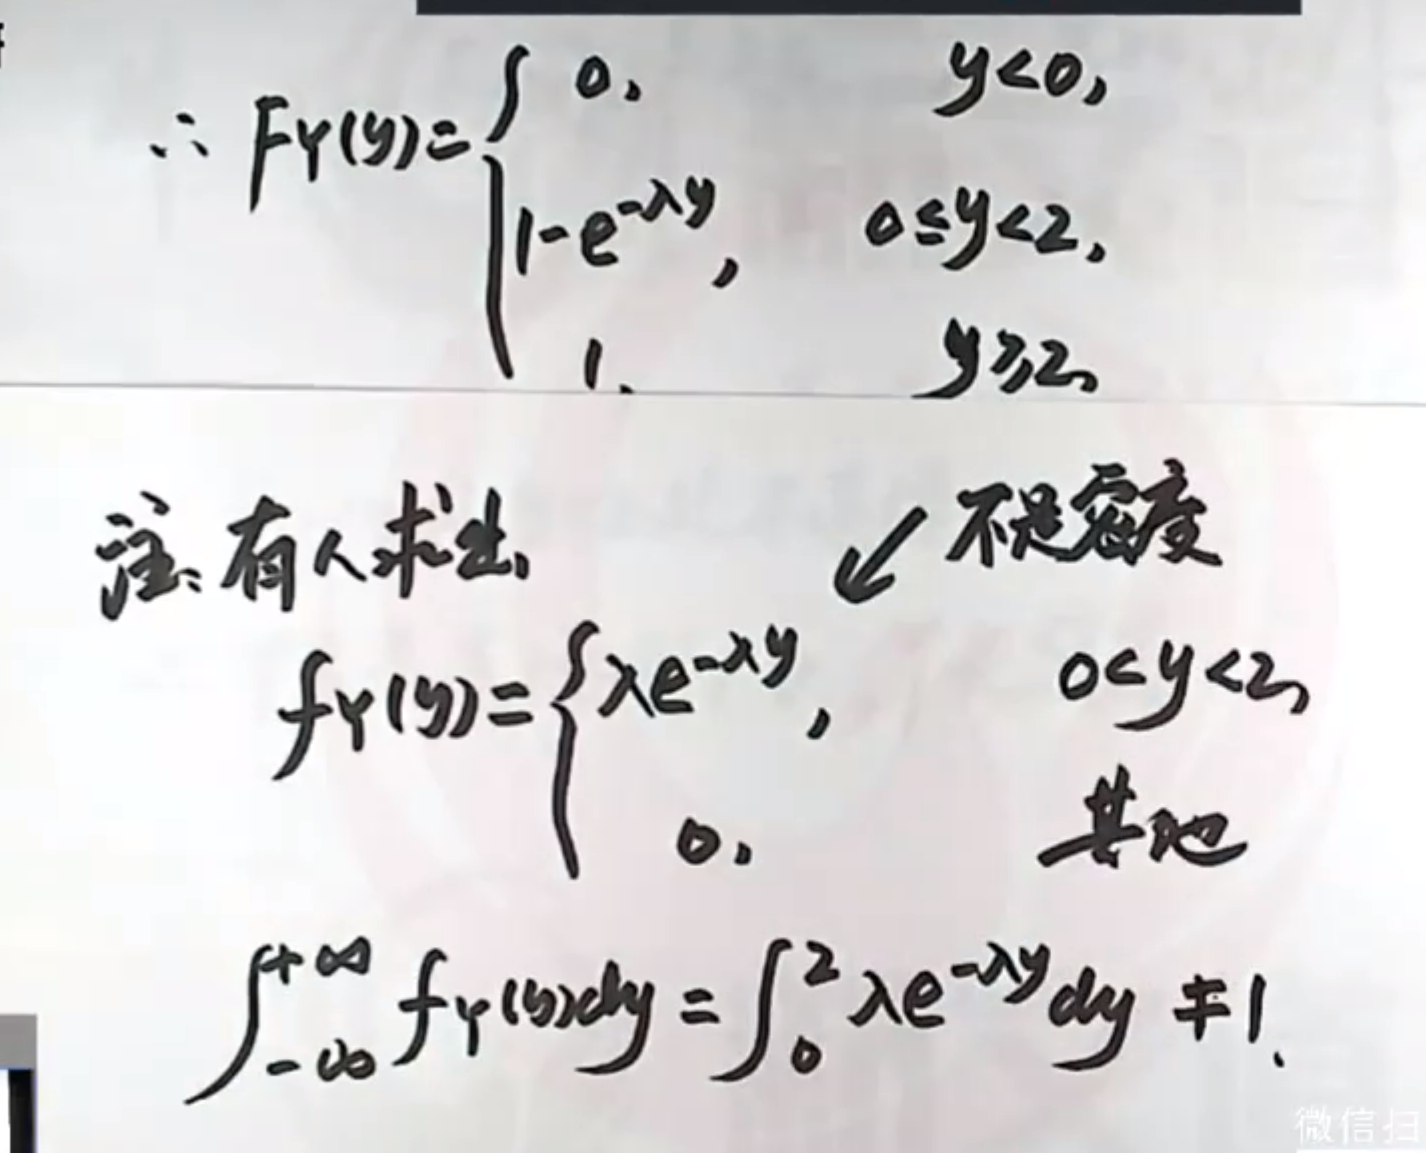 ∴ F_Y(y)= { 0, y<0,
1-e^{-λy}, 0≤y<2,
1, y≥2,
注: 有人求出, ↙ 不是密度
f_Y(y)= { λe^{-λy}, 0<y<2,
0, 其他
∫_{-∞}^{+∞} f_Y(y)dy = ∫_0^2 λe^{-λy}dy ≠ 1.
微信扫